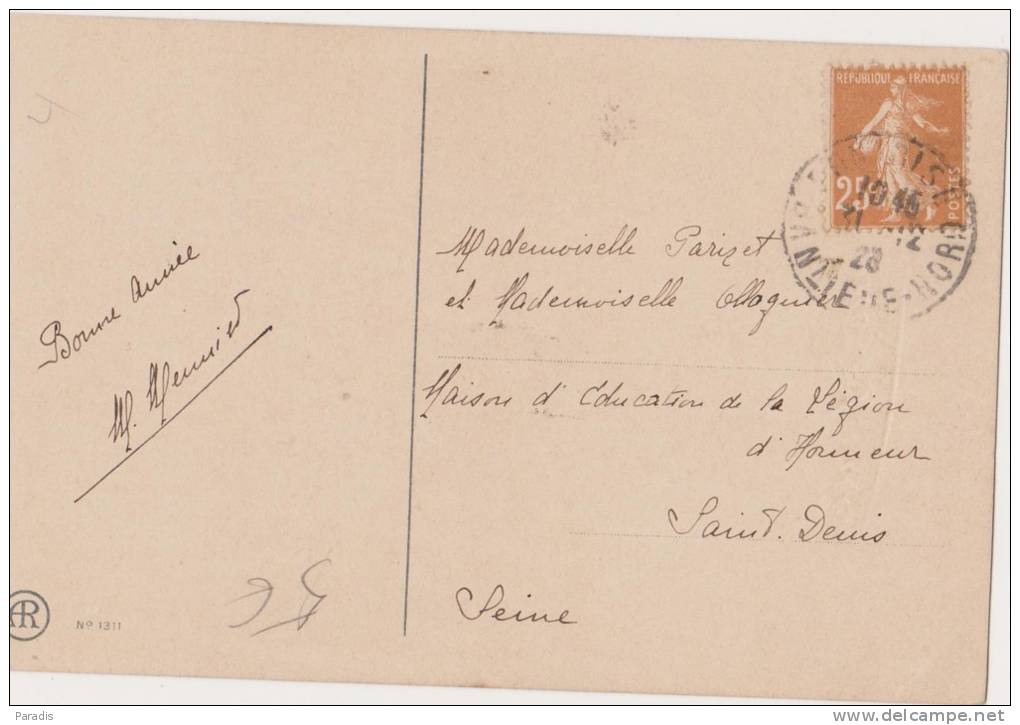 Bonne année
M. Meunier
AR
Nº 1311
5 €
REPUBLIQUE FRANÇAISE
25
POSTES
10 45
31
12
28
NORD
Mademoiselle Parizet
et Mademoiselle Ollagnier
Maison d'Education de la Légion
d'Honneur
Saint. Denis
Seine
Paradis
www.delcampe.net